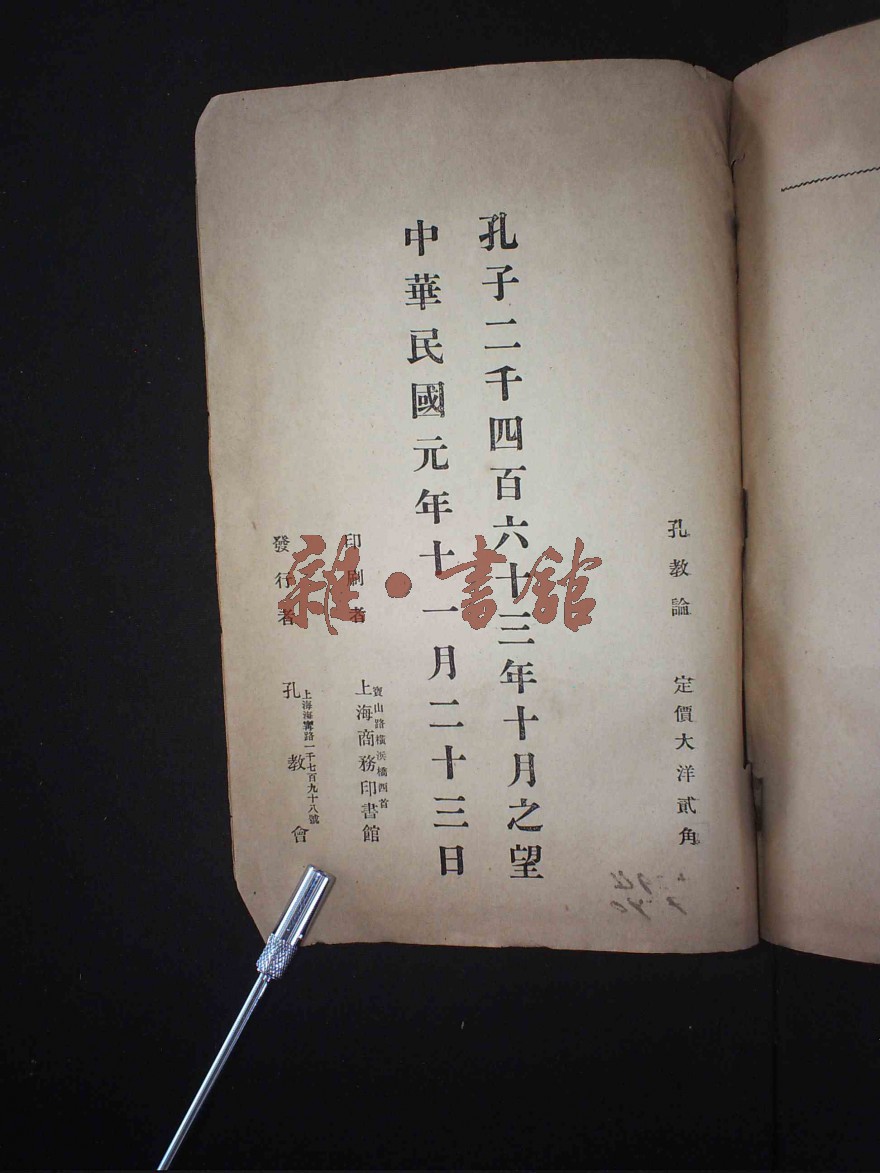 孔教論　定價大洋貳角
孔子二千四百六十三年十月之望
中華民國元年十一月二十三日
印刷者　寶山路橫浜橋西首
上海商務印書館
發行者　上海海寧路一千七百九十八號
孔教會
雜·書館